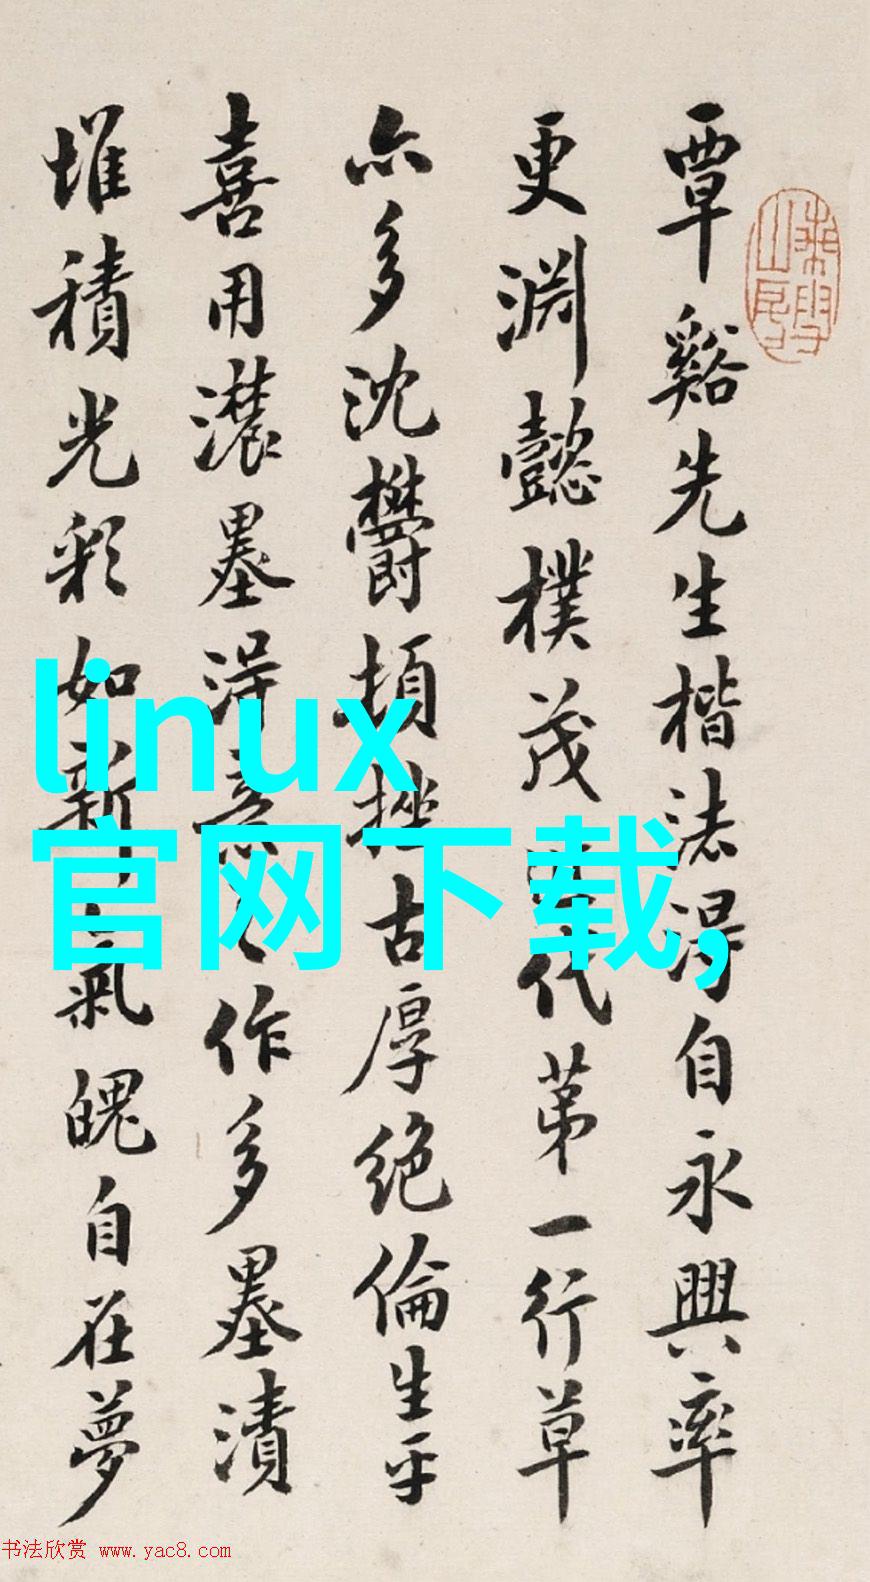 覃谿先生楷法淂自永興率
更淵懿樸茂代苐一行草
亦多沈鬱頓挫古厚絶倫生平
喜用濃墨淂意之作多墨漬
堆積光彩如新氣魄自在夢
linux
官网下载,
书法欣赏 www.yac8.com